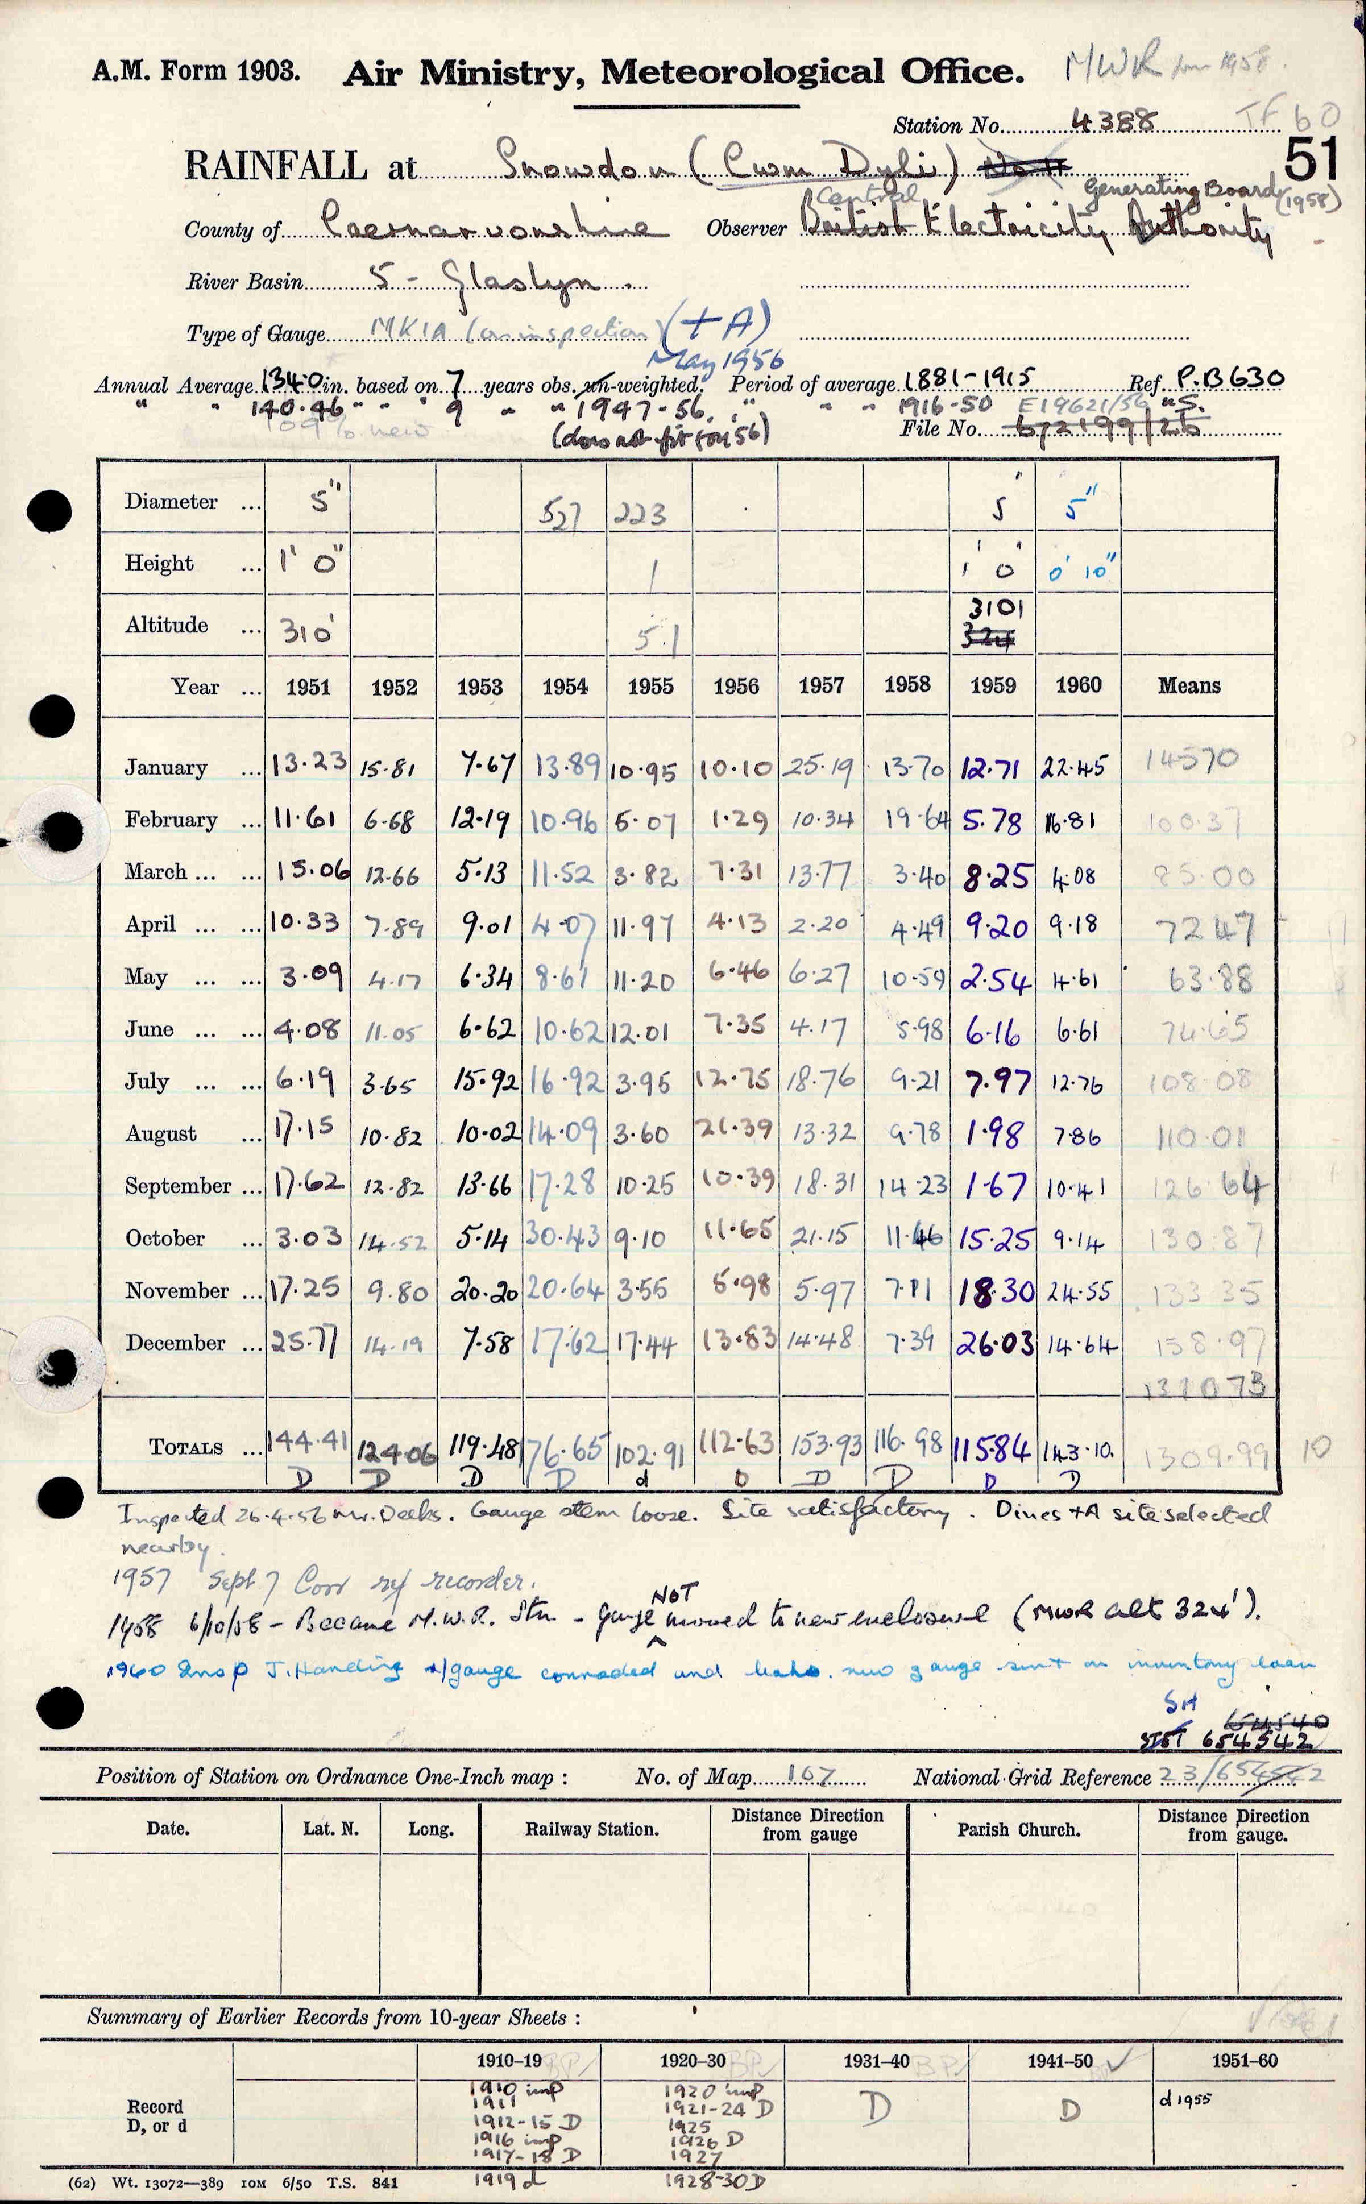 A.M. Form 1903. Air Ministry, Meteorological Office. MWR from 1958.
Station No. 4388 TF 60
51
RAINFALL at Snowdon (Cwm Dyli)
Central Generating Board (1958)
County of Caernarvonshire Observer British Electricity Authority
River Basin 5 - Glaslyn.
Type of Gauge MK1A (on inspection) (+A)
May 1956
Annual Average 134.0 in. based on 7 years obs. un-weighted. Period of average 1881-1915 Ref. P.B630
" " 140.46 " " " 9 " " " 1947-56. " " " 1916-50 E19621/56 "S.
109% new (does not fit for 56) File No. 672199/26
Diameter ... 5" 527 223 5" 5"
Height ... 1' 0" 1 1' 0' 0' 10"
Altitude ... 310' 5.1 3101 324
Year ... 1951 1952 1953 1954 1955 1956 1957 1958 1959 1960 Means
January ... 13.23 15.81 7.67 13.89 10.95 10.10 25.19 13.70 12.71 22.45 145.70
February ... 11.61 6.68 12.19 10.96 5.07 1.29 10.34 19.64 5.78 16.81 100.37
March ... ... 15.06 12.66 5.13 11.52 3.82 7.31 13.77 3.40 8.25 4.08 85.00
April ... ... 10.33 7.89 9.01 4.07 11.97 4.13 2.20 4.49 9.20 9.18 72.47
May ... ... 3.09 4.17 6.34 8.61 11.20 6.46 6.27 10.59 2.54 4.61 63.88
June ... ... 4.08 11.05 6.62 10.62 12.01 7.35 4.17 5.98 6.16 6.61 74.65
July ... ... 6.19 3.65 15.92 16.92 3.95 12.75 18.76 9.21 7.97 12.76 108.08
August ... 17.15 10.82 10.02 14.09 3.60 21.39 13.32 9.78 1.98 7.86 110.01
September ... 17.62 12.82 13.66 17.28 10.25 10.39 18.31 14.23 1.67 10.41 126.64
October ... 3.03 14.52 5.14 30.43 9.10 11.65 21.15 11.46 15.25 9.14 130.87
November ... 17.25 9.80 20.20 20.64 3.55 5.98 5.97 7.11 18.30 24.55 133.35
December ... 25.77 14.19 7.58 17.62 17.44 13.83 14.48 7.39 26.03 14.64 158.97
1310 73
TOTALS ... 144.41 124.06 119.48 176.65 102.91 112.63 153.93 116.98 115.84 143.10 1309.99 10
D D D D d D D D D D
Inspected 26.4.56 Mr. Deeks. Gauge stem loose. Site satisfactory. Dines +A site selected
nearby.
1957 Sept 7 Corr ref recorder.
1958 6/10/58 - Became M.W.R. Stn - gauge NOT moved to new enclosure (MWR alt 324').
1960 Insp J. Harding gauge corroded and leaks. new gauge sent on inventory loan
SH 64540
STET 654542
Position of Station on Ordnance One-Inch map : No. of Map 107 National Grid Reference 23/654542
Date. Lat. N. Long. Railway Station. Distance Direction from gauge Parish Church. Distance Direction from gauge.
Summary of Earlier Records from 10-year Sheets :
1910–19 1920–30 1931–40 1941–50 1951–60
Record D, or d
1910 imp 1920 imp D D d 1955
1911 1921-24 D
1912-15 D 1925
1916 imp 1926 D
1917-18 D 1927
1919 d 1928-30 D
(62) Wt. 13072—389 10M 6/50 T.S. 841